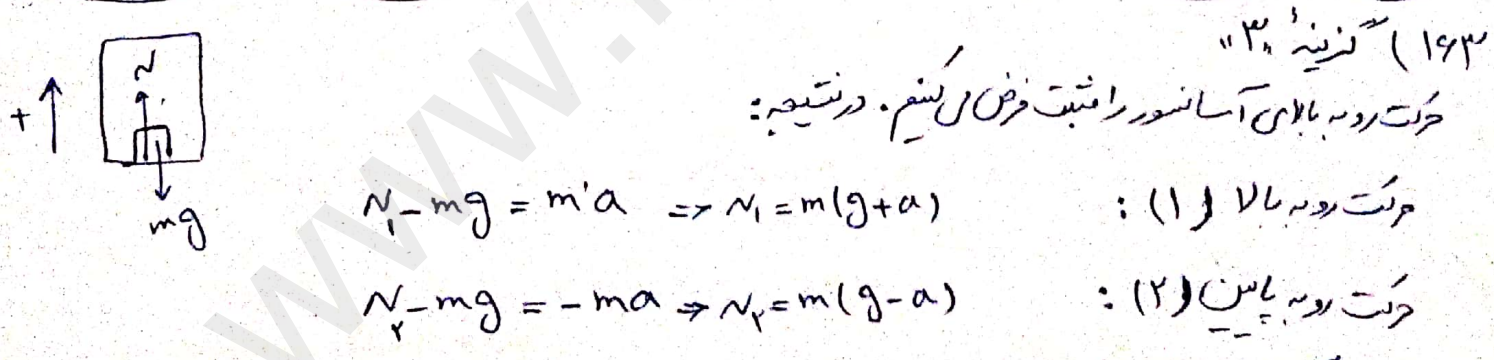 ۱۶۳) گزینهٔ «۳»
حرکت رو به بالای آسانسور را مثبت فرض می‌کنیم. در نتیجه:
حرکت رو به بالا (۱): N₁ - mg = m'a => N₁ = m(g+a)
حرکت رو به پایین (۲): N₂ - mg = -ma => N₂ = m(g-a)
+
N
mg
www.